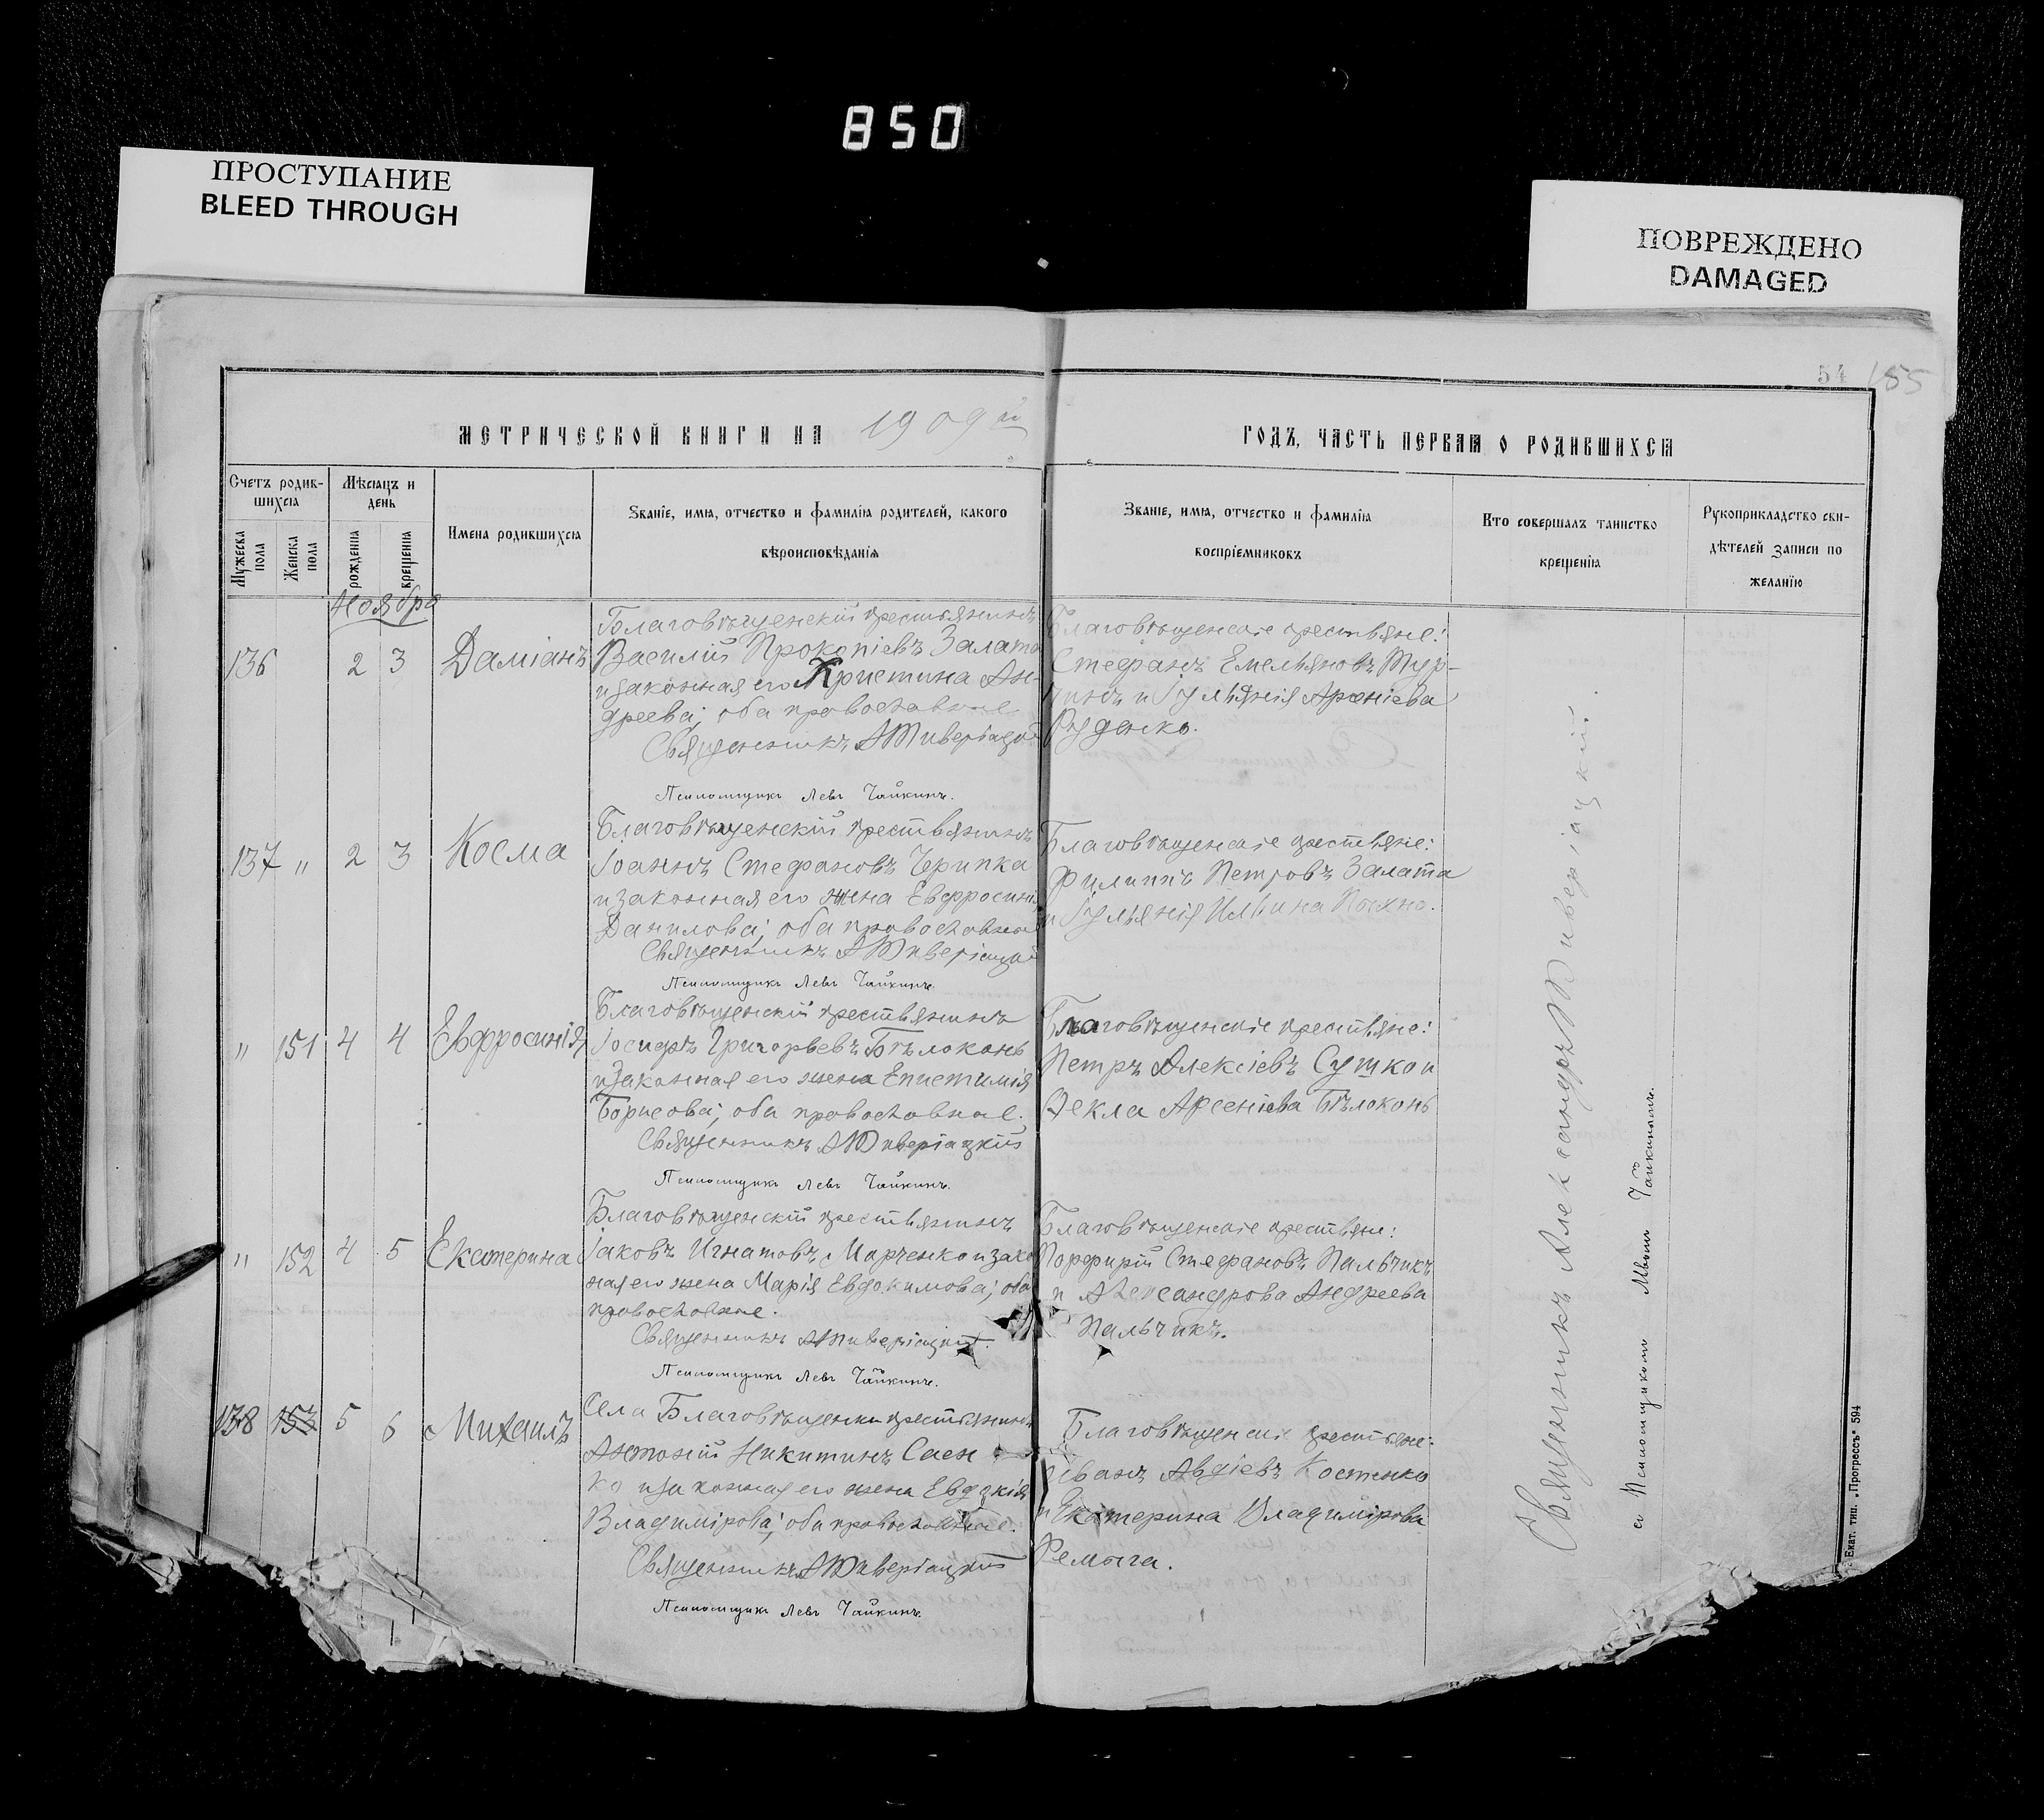 850
ПРОСТУПАНИЕ
BLEED THROUGH
ПОВРЕЖДЕНО
DAMAGED
54 155
МЕТРИЧЕСКОЙ КНИГИ НА 1909й ГОДЪ, ЧАСТЬ ПЕРВАЯ О РОДИВШИХСЯ
Счетъ родив-
шихся
Мужеска пола
Женска пола
Мѣсяцъ и
день
рожденія
крещенія
Имена родившихся
Званіе, имя, отчество и фамилія родителей, какого
вѣроисповѣданія
Званіе, имя, отчество и фамилія
воспріемниковъ
Кто совершалъ таинство
крещенія
Рукоприкладство сви-
дѣтелей записи по
желанію
Ноября
136 2 3 Даміанъ
Благовѣщенскій крестьянинъ
Василій Прокопіевъ Залата
и законная его Христина Ан-
дреева; оба православные
Священникъ АТиверіацкій
Псаломщикъ Левъ Чайкинъ.
Благовѣщенскіе крестьяне:
Стефанъ Емельяновъ Тур-
и Іульянія Арсеніева
Руденко.
137 " 2 3 Косма
Благовѣщенскій крестьянинъ
Іоаннъ Стефановъ Чрипка
и законная его жена Евфросинія
Данилова; оба православные
Священникъ АТиверіацкій
Псаломщикъ Левъ Чайкинъ.
Благовѣщенскіе крестьяне:
Филиппъ Петровъ Залата
и Іульянія Ильина
" 151 4 4 Евфросинія
Благовѣщенскій крестьянинъ
Іосифъ Григорьевъ Бѣлоконь
и законная его жена Епистимія
Борисова; оба православные.
Священникъ АТиверіацкій
Псаломщикъ Левъ Чайкинъ.
Благовѣщенскіе крестьяне:
Петръ Алексіевъ Сушко и
Фекла Арсеніева Бѣлоконь
" 152 4 5 Екатерина
Благовѣщенскій крестьянинъ
Іаковъ Игнатовъ Марченко и зако
ная его жена Марія Евдокимова; оба
православные.
Священникъ АТиверіацкій.
Псаломщикъ Левъ Чайкинъ.
Благовѣщенскіе крестьяне:
Порфирій Стефановъ Пальчикъ
и Александрова Андреева
Пальчикъ.
138 153 5 6 Михаилъ
Села Благовѣщенки крестьянинъ
Антоній Никитинъ Саен
ко и законная его жена Евдокія
Владимірова; оба православные.
Священникъ АТиверіацкій
Псаломщикъ Левъ Чайкинъ.
Благовѣщенскіе крестьяне:
Иванъ Авдіевъ Костенко
и Екатерина Владимірова
Ремыга.
Священникъ Александръ Тиверіацкій.
а Псаломщикомъ Львомъ Чайкинымъ.
Екат. тип. „Прогрессъ" 594